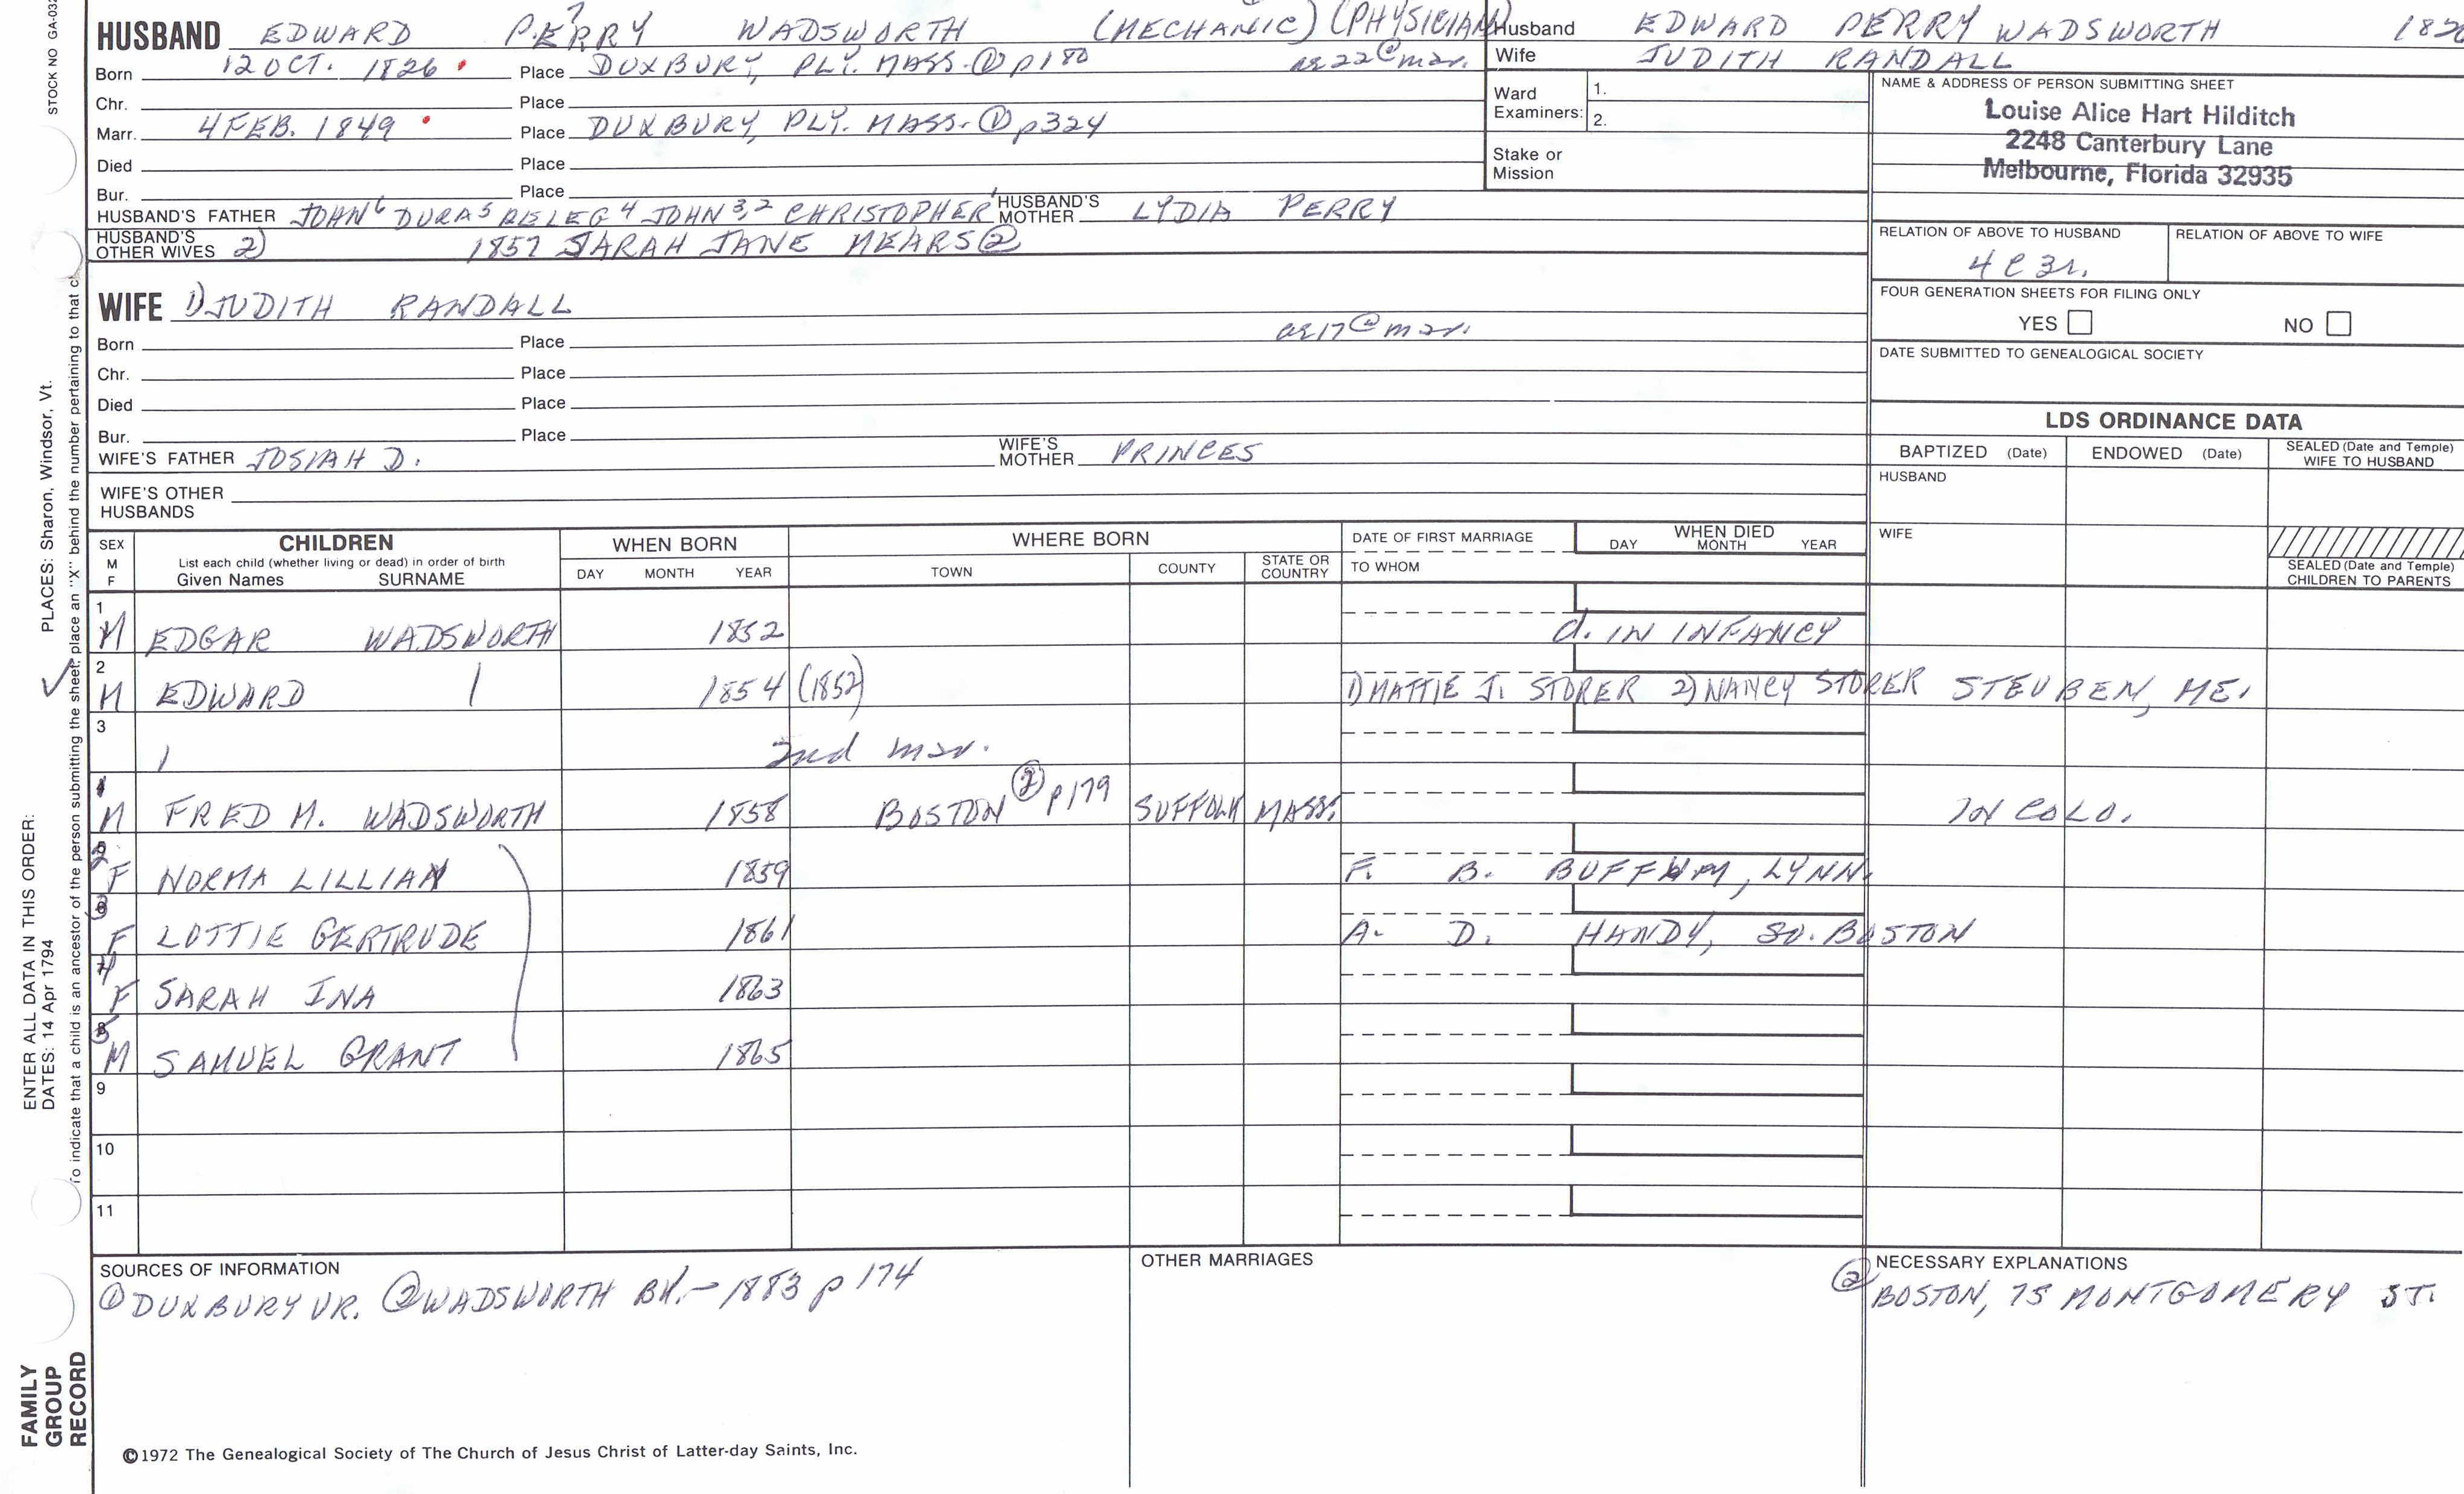 HUSBAND EDWARD PERRY WADSWORTH (MECHANIC) (PHYSICIAN)
Born 12 OCT. 1826 Place DUXBURY, PLY. MASS. ① p180 ae 22 @ mar.
Chr. Place
Marr. 4 FEB. 1849 Place DUXBURY, PLY. MASS. ① p324
Died Place
Bur. Place
HUSBAND'S FATHER JOHN 6 DURA 5 PELEG 4 JOHN 3,2 CHRISTOPHER 1 HUSBAND'S MOTHER LYDIA PERRY
HUSBAND'S OTHER WIVES 2) 1857 SARAH JANE MEARS ②
Husband EDWARD PERRY WADSWORTH
Wife JUDITH RANDALL
Ward Examiners: 1.
2.
Stake or Mission
NAME & ADDRESS OF PERSON SUBMITTING SHEET
Louise Alice Hart Hilditch
2248 Canterbury Lane
Melbourne, Florida 32935
RELATION OF ABOVE TO HUSBAND RELATION OF ABOVE TO WIFE
4 C 3r.
FOUR GENERATION SHEETS FOR FILING ONLY
YES NO
DATE SUBMITTED TO GENEALOGICAL SOCIETY
WIFE 1) JUDITH RANDALL
ae 17 @ mar.
Born Place
Chr. Place
Died Place
Bur. Place
WIFE'S FATHER JOSIAH D. WIFE'S MOTHER PRINCES
WIFE'S OTHER HUSBANDS
LDS ORDINANCE DATA
BAPTIZED (Date) ENDOWED (Date) SEALED (Date and Temple) WIFE TO HUSBAND
HUSBAND
WIFE
SEALED (Date and Temple) CHILDREN TO PARENTS
SEX M F CHILDREN WHEN BORN WHERE BORN DATE OF FIRST MARRIAGE WHEN DIED
List each child (whether living or dead) in order of birth
Given Names SURNAME DAY MONTH YEAR TOWN COUNTY STATE OR COUNTRY TO WHOM DAY MONTH YEAR
1 M EDGAR WADSWORTH 1852 d. IN INFANCY
2 M EDWARD 1854 (1852) 1) MATTIE J. STORER 2) NANCY STORER STEUBEN, ME.
3 2nd mar.
1 M FRED M. WADSWORTH 1858 BOSTON ② p179 SUFFOLK MASS. IN COLO.
2 F NORMA LILLIAN 1859 F. B. BUFFUM, LYNN.
3 F LOTTIE GERTRUDE 1861 A. D. HANDY, SO. BOSTON
4 F SARAH INA 1863
5 M SAMUEL GRANT 1865
9
10
11
SOURCES OF INFORMATION
① DUXBURY VR. ② WADSWORTH BK. - 1883 p 174
OTHER MARRIAGES
NECESSARY EXPLANATIONS
② BOSTON, 75 MONTGOMERY ST.
©1972 The Genealogical Society of The Church of Jesus Christ of Latter-day Saints, Inc.
STOCK NO GA-032
PLACES: Sharon, Windsor, Vt.
place an "X" behind the number pertaining to that
ENTER ALL DATA IN THIS ORDER:
DATES: 14 Apr 1794
To indicate that a child is an ancestor of the person submitting the sheet,
FAMILY
GROUP
RECORD